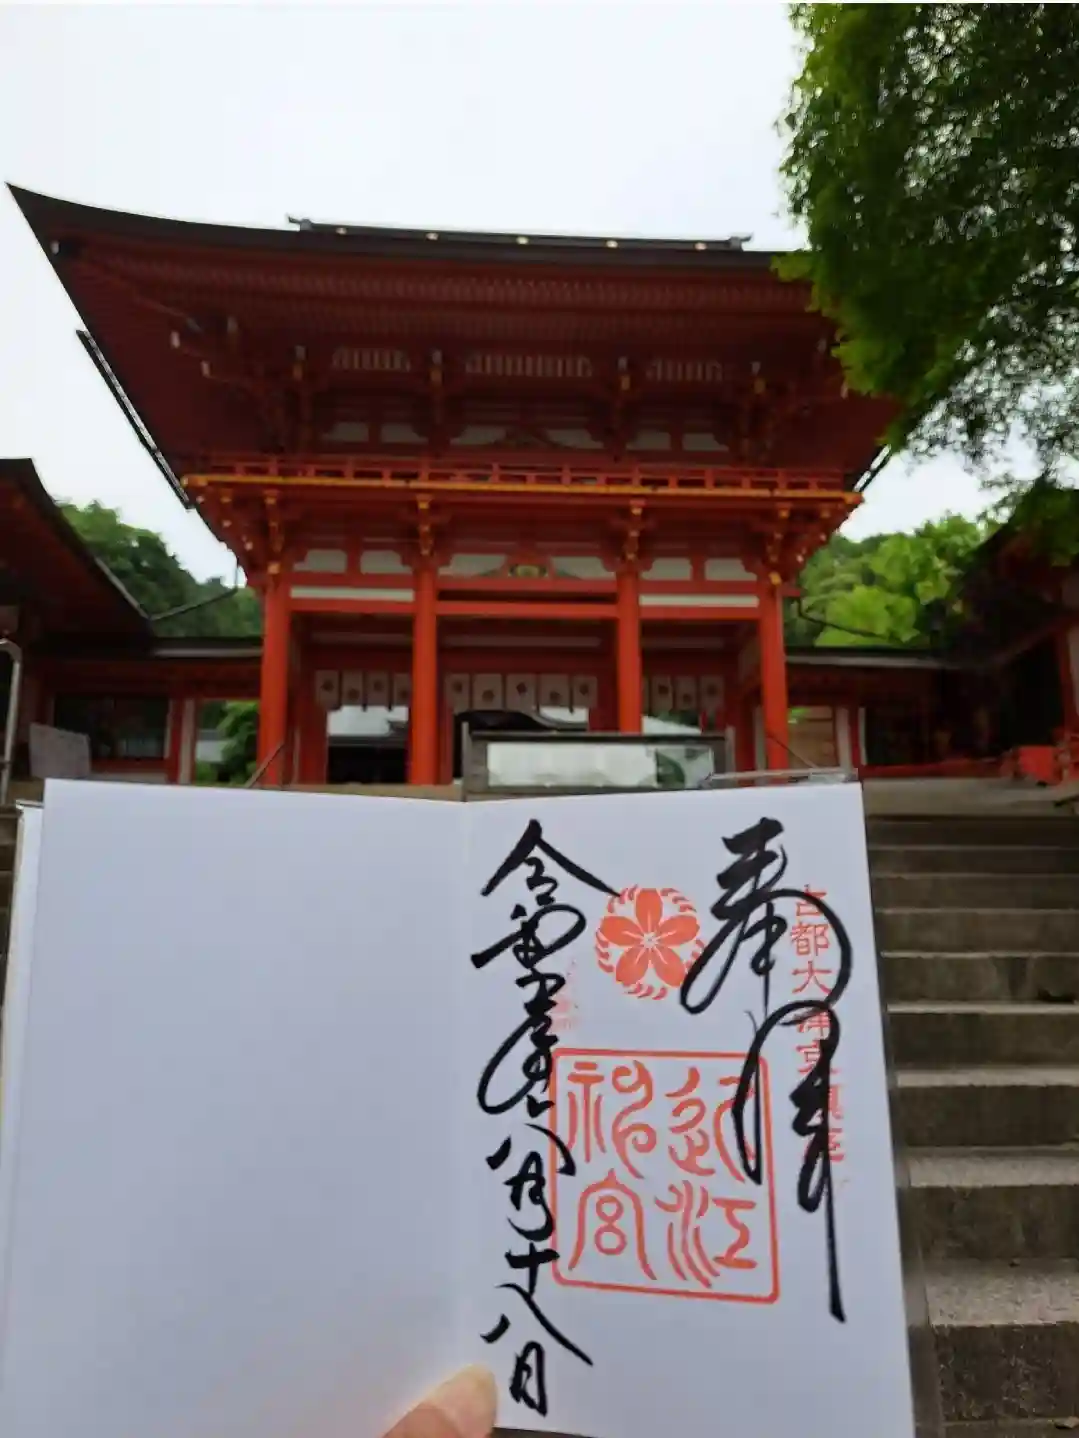 奉拝
古都大津京鎮座
近江
神宮
令和六年八月十八日